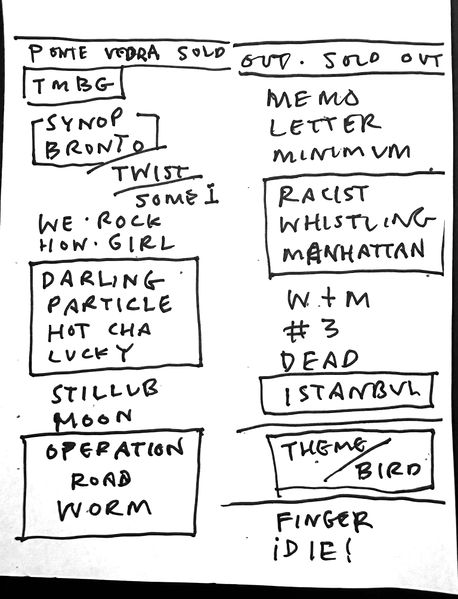 PONTE VEDRA SOLD OUT. SOLD OUT
TMBG
SYNOP
BRONTO
TWIST
SOME I
WE. ROCK
HOW. GIRL
DARLING
PARTICLE
HOT CHA
LUCKY
STILLUB
MOON
OPERATION
ROAD
WORM
MEMO
LETTER
MINIMUM
RACIST
WHISTLING
MANHATTAN
W + M
# 3
DEAD
ISTANBUL
THEME
BIRD
FINGER
iDIE!